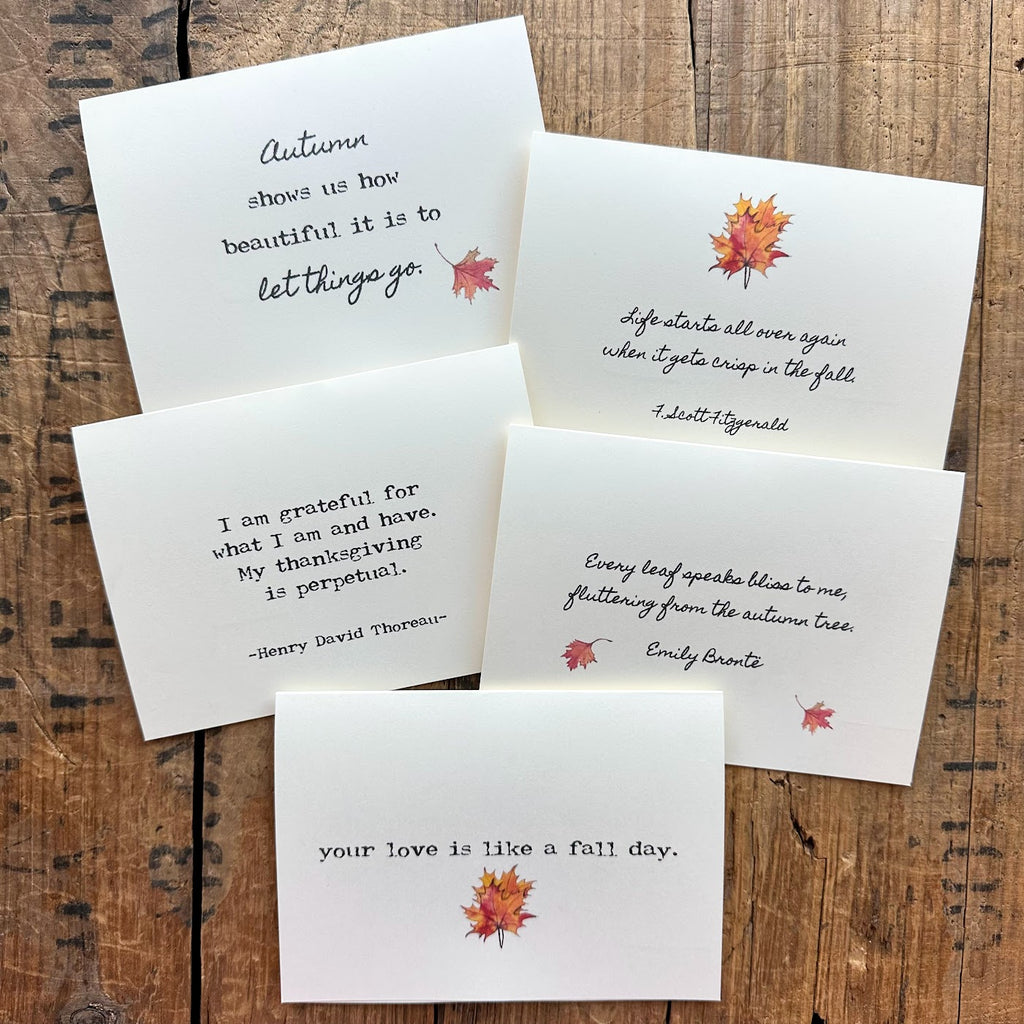 Autumn
shows us how
beautiful it is to
let things go.
Life starts all over again
when it gets crisp in the fall.
F. Scott Fitzgerald
I am grateful for
what I am and have.
My thanksgiving
is perpetual.
-Henry David Thoreau-
Every leaf speaks bliss to me,
fluttering from the autumn tree.
Emily Brontë
your love is like a fall day.